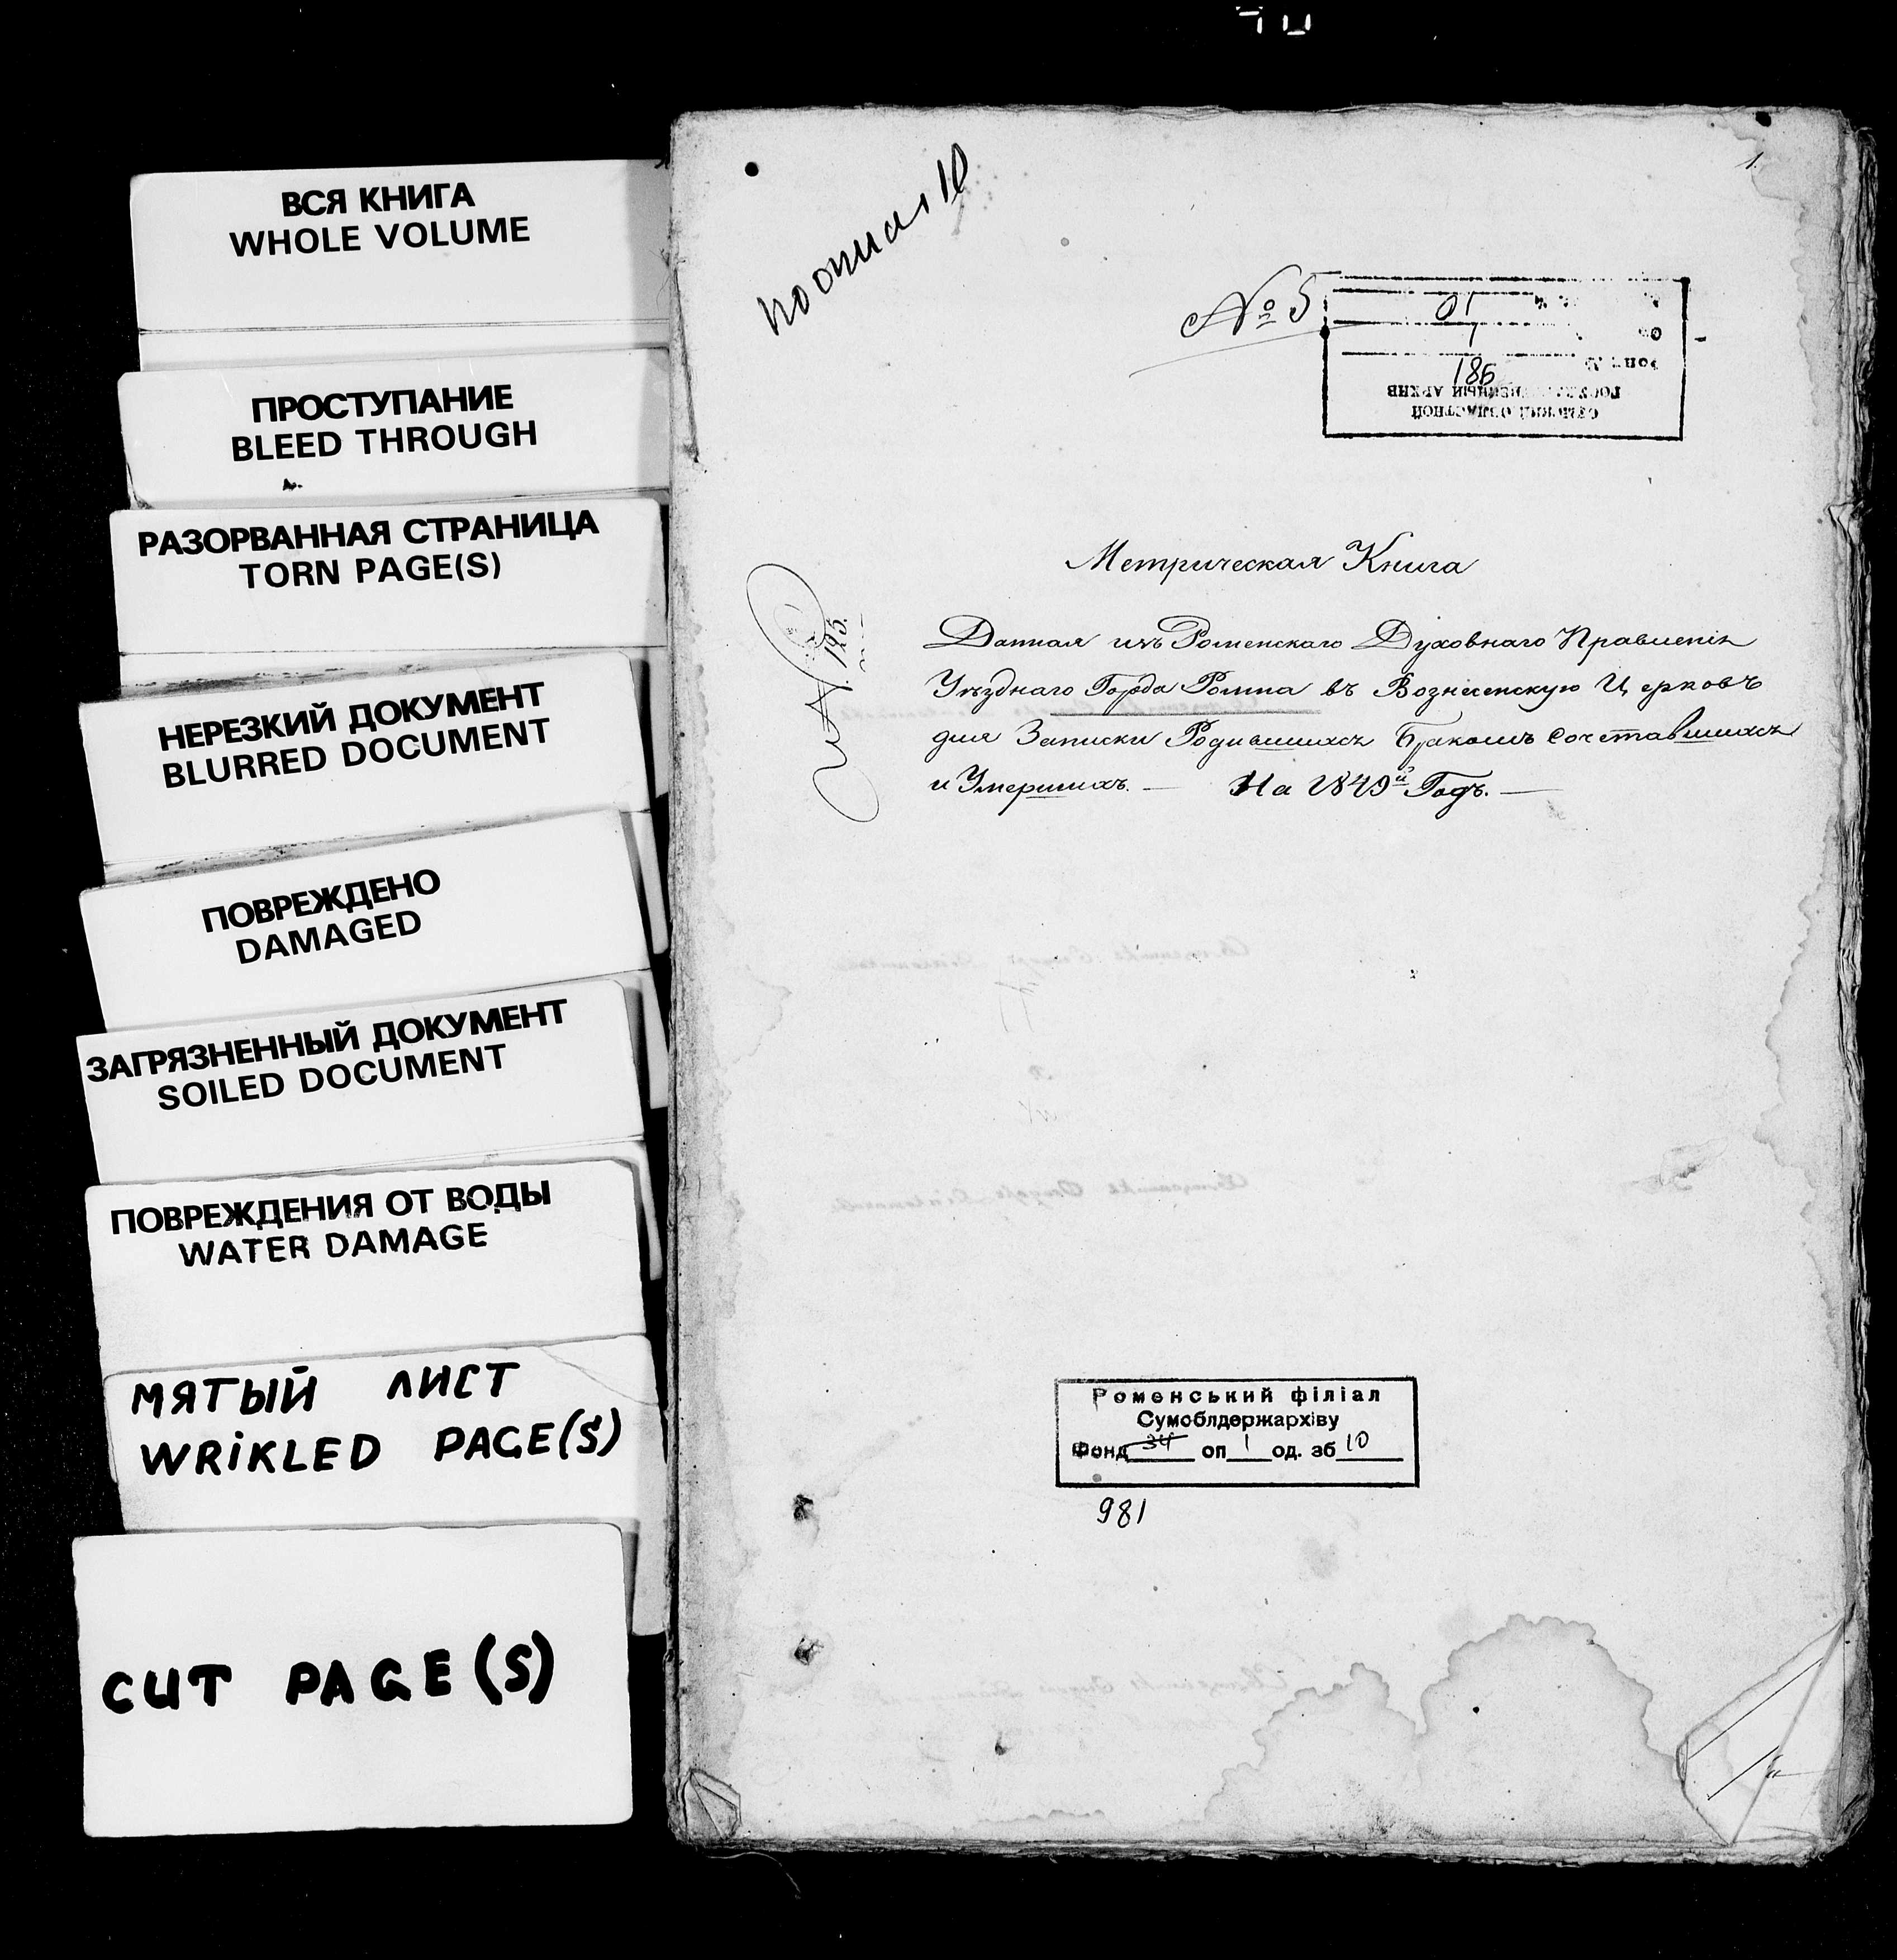 ВСЯ КНИГА
WHOLE VOLUME
ПРОСТУПАНИЕ
BLEED THROUGH
РАЗОРВАННАЯ СТРАНИЦА
TORN PAGE(S)
НЕРЕЗКИЙ ДОКУМЕНТ
BLURRED DOCUMENT
ПОВРЕЖДЕНО
DAMAGED
ЗАГРЯЗНЕННЫЙ ДОКУМЕНТ
SOILED DOCUMENT
ПОВРЕЖДЕНИЯ ОТ ВОДЫ
WATER DAMAGE
МЯТЫЙ ЛИСТ
WRIKLED PAGE(S)
CUT PAGE(S)
1.
10
№ 5
АРХИВ
Метрическая Книга
Данная изъ Роменскаго Духовнаго Правленія
Уѣзднаго Города Ромна въ Вознесенскую Церковь
для Записки Родившихся Бракомъ Сочетавшихся
и Умершихъ. — На 1849й Годъ. —
Роменський філіал
Сумоблдержархіву
Фонд 34 оп 1 од. зб 10
981